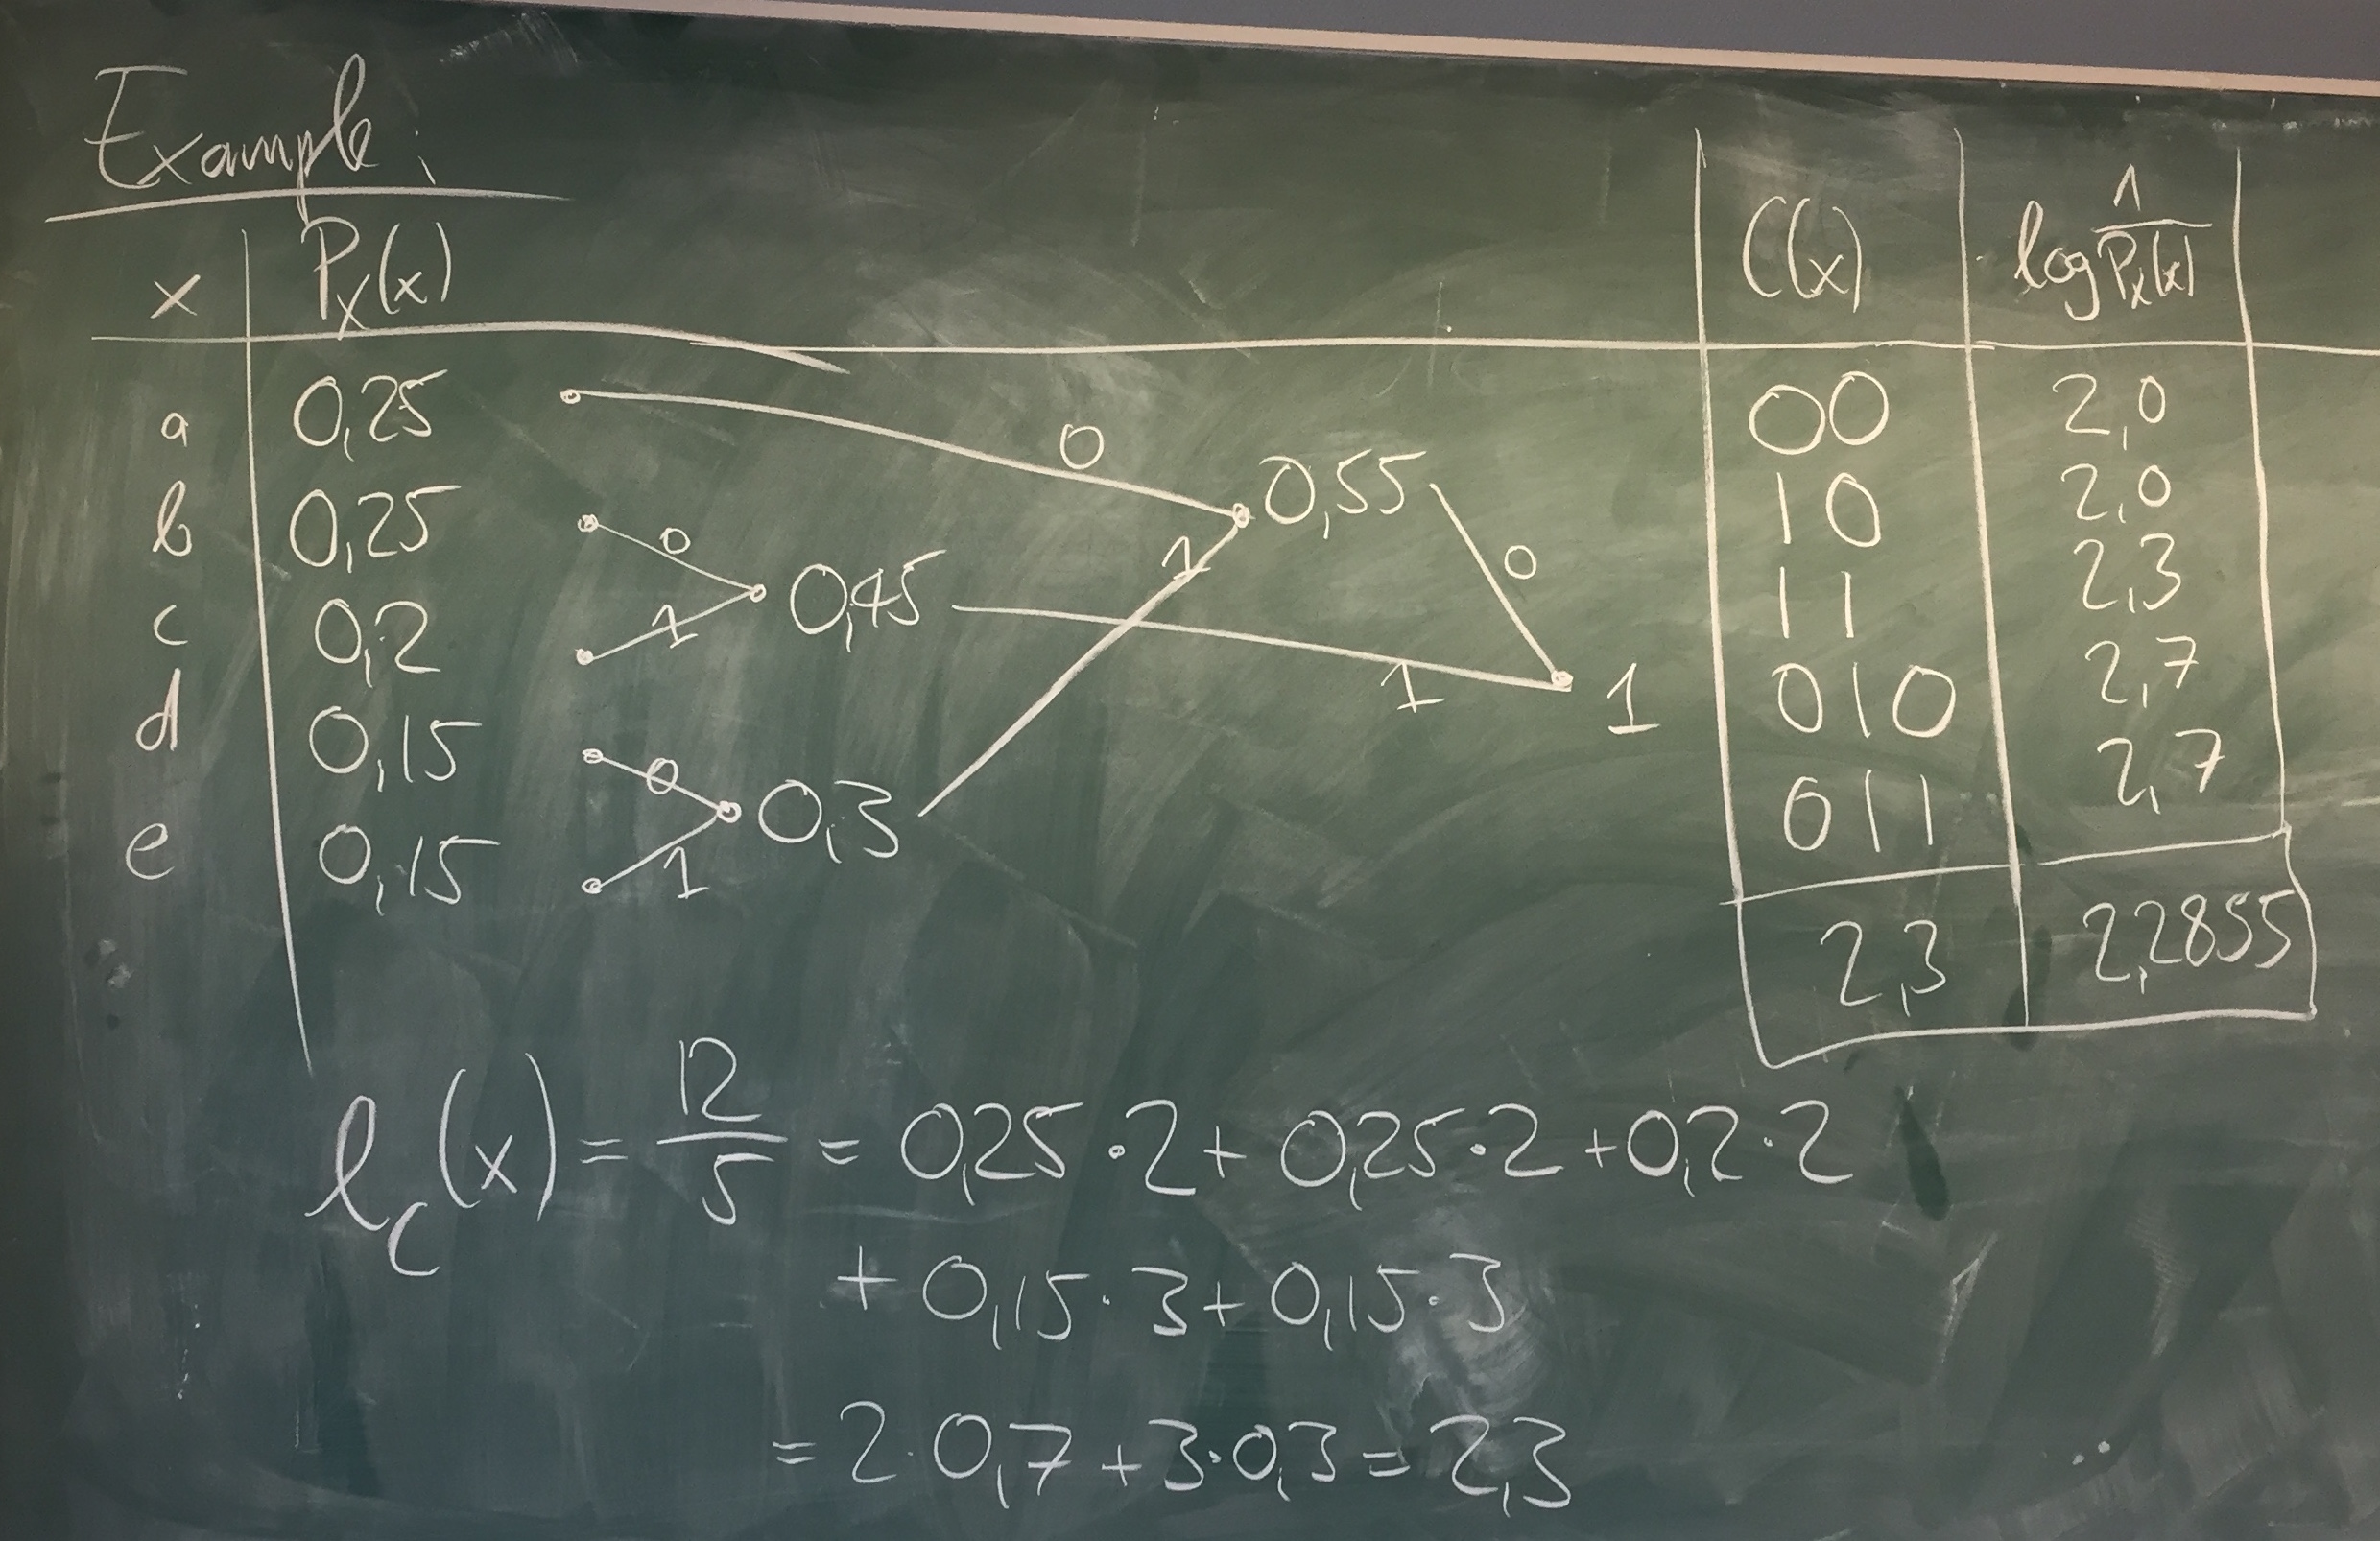 Example:
x | P_X(x) | C(x) | log 1/P_X(x)
a | 0,25 | 0 | 00 | 2,0
b | 0,25 | 0 | 0,55 | 10 | 2,0
c | 0,2 | 1 | 0,45 | 1 | 0 | 11 | 2,3
d | 0,15 | 0 | 1 | 1 | 010 | 2,7
e | 0,15 | 1 | 0,3 | 011 | 2,7
2,3 | 2,2855
l_C(x) = 12/5 = 0,25 · 2 + 0,25 · 2 + 0,2 · 2
+ 0,15 · 3 + 0,15 · 3
= 2 · 0,7 + 3 · 0,3 = 2,3